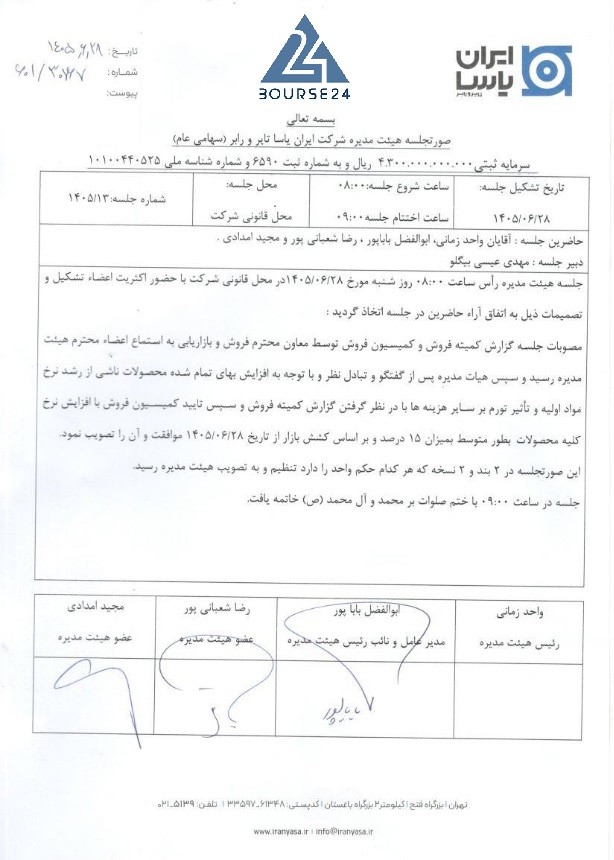 ایران یاسا
تایر و رابر
BOURSE24
تاریخ: ۱۴۰۵,۶,۲۸
شماره:
پیوست:
بسمه تعالی
صورتجلسه هیئت مدیره شرکت ایران یاسا تایر و رابر (سهامی عام)
سرمایه ثبتی ۴.۳۰۰.۰۰۰.۰۰۰.۰۰۰ ریال و به شماره ثبت ۶۵۹۰ و شماره شناسه ملی ۱۰۱۰۰۴۴۰۵۲۵
تاریخ تشکیل جلسه: ساعت شروع جلسه:۰۸:۰۰ محل جلسه: شماره جلسه:۱۴۰۵/۱۳
۱۴۰۵/۰۶/۲۸ ساعت اختتام جلسه:۰۹:۰۰ محل قانونی شرکت
حاضرین جلسه : آقایان واحد زمانی، ابوالفضل باباپور ، رضا شعبانی پور و مجید امدادی .
دبیر جلسه : مهدی عیسی بیگلو
جلسه هیئت مدیره رأس ساعت ۰۸:۰۰ روز شنبه مورخ ۱۴۰۵/۰۶/۲۸در محل قانونی شرکت با حضور اکثریت اعضاء تشکیل و
تصمیمات ذیل به اتفاق آراء حاضرین در جلسه اتخاذ گردید :
مصوبات جلسه گزارش کمیته فروش و کمیسیون فروش توسط معاون محترم فروش و بازاریابی به استماع اعضاء محترم هیئت
مدیره رسید و سپس هیات مدیره پس از گفتگو و تبادل نظر و با توجه به افزایش بهای تمام شده محصولات ناشی از رشد نرخ
مواد اولیه و تأثیر تورم بر سایر هزینه ها با در نظر گرفتن گزارش کمیته فروش و سپس تایید کمیسیون فروش با افزایش نرخ
کلیه محصولات بطور متوسط بمیزان ۱۵ درصد و بر اساس کشش بازار از تاریخ ۱۴۰۵/۰۶/۲۸ موافقت و آن را تصویب نمود.
این صورتجلسه در ۲ بند و ۲ نسخه که هر کدام حکم واحد را دارد تنظیم و به تصویب هیئت مدیره رسید.
جلسه در ساعت ۰۹:۰۰ با ختم صلوات بر محمد و آل محمد (ص) خاتمه یافت.
واحد زمانی ابوالفضل بابا پور رضا شعبانی پور مجید امدادی
رئیس هیئت مدیره مدیر عامل و نائب رئیس هیئت مدیره عضو هیئت مدیره عضو هیئت مدیره
تهران | بزرگراه فتح | کیلومتر۲ بزرگراه باغستان | کدپستی: ۶۱۳۴۸-۳۳۵۹۷ | تلفن: ۵۱۳۹-۰۲۱
www.iranyasa.ir | info@iranyasa.ir